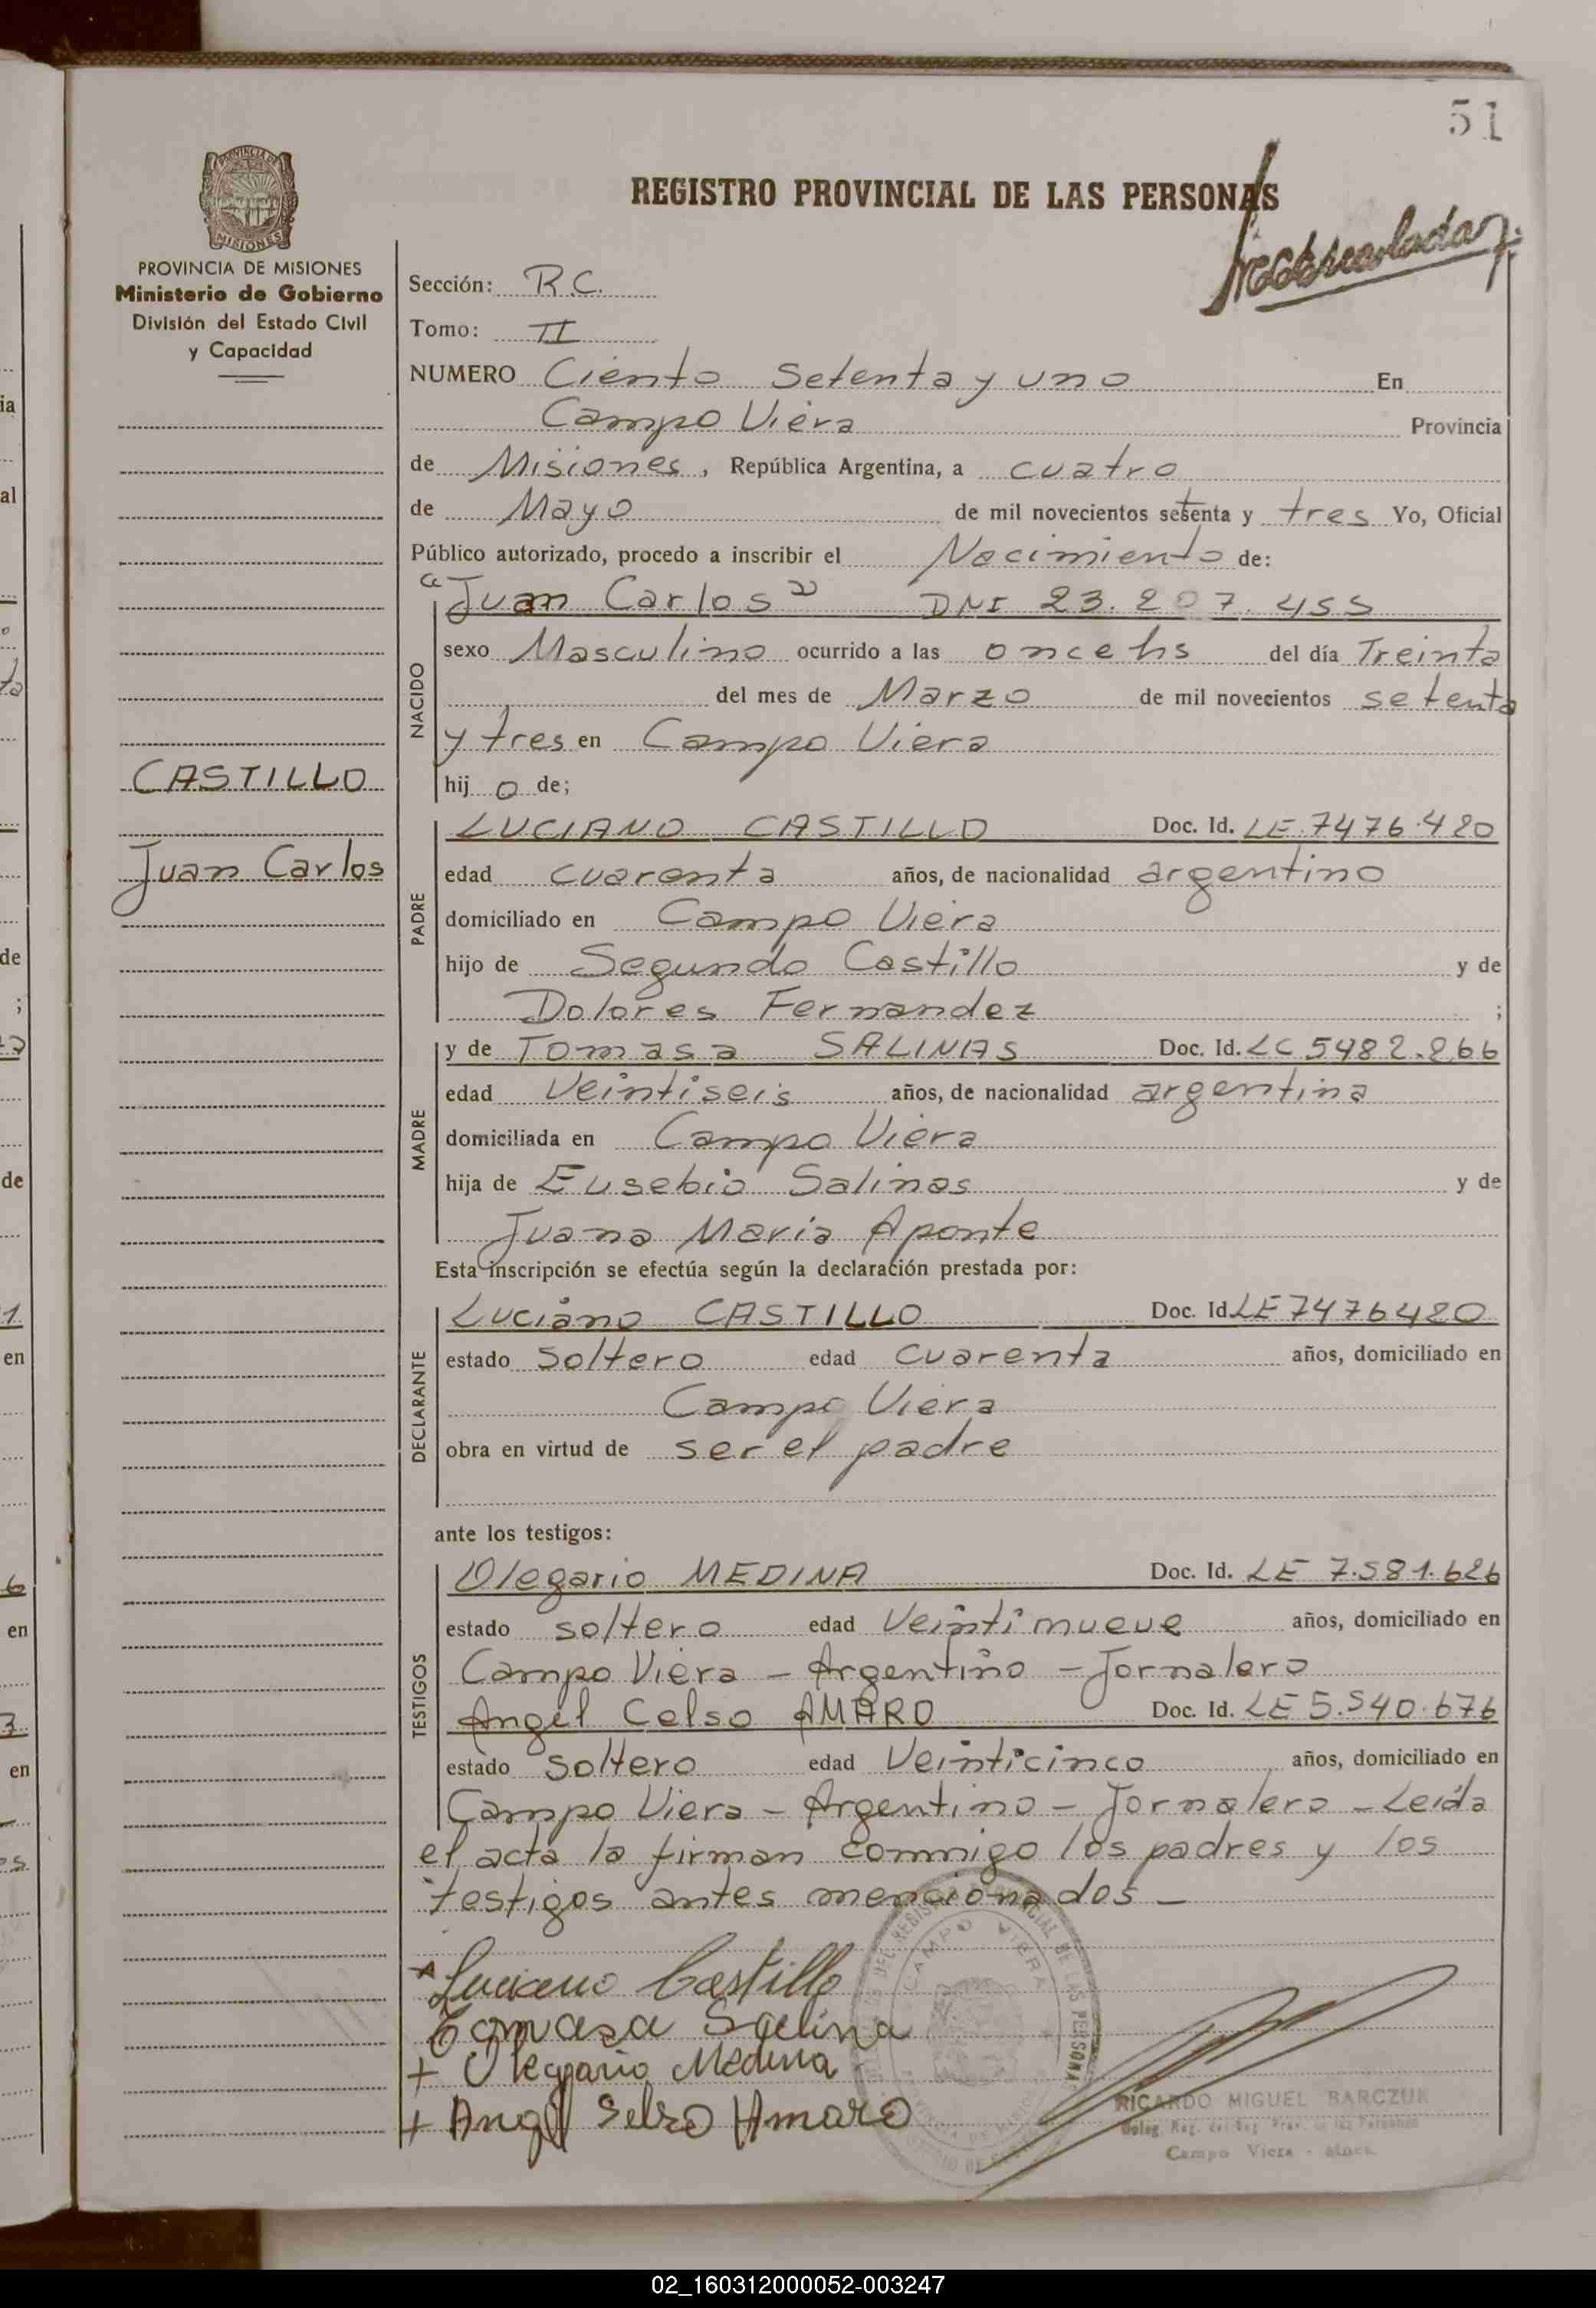 51
REGISTRO PROVINCIAL DE LAS PERSONAS
PROVINCIA DE MISIONES
Ministerio de Gobierno
División del Estado Civil
y Capacidad
CASTILLO
Juan Carlos
Sección: R.C.
Tomo: II
NUMERO Ciento Setenta y uno En
Campo Viera Provincia
de Misiones, República Argentina, a cuatro
de Mayo de mil novecientos setenta y tres Yo, Oficial
Público autorizado, procedo a inscribir el Nacimiento de:
"Juan Carlos" DNI 23.207.455
NACIDO
sexo Masculino ocurrido a las once hs del día Treinta
del mes de Marzo de mil novecientos setenta
y tres en Campo Viera
hijo de;
PADRE
LUCIANO CASTILLO Doc. Id. LE.7476.420
edad cuarenta años, de nacionalidad argentino
domiciliado en Campo Viera
hijo de Segundo Castillo y de
Dolores Fernandez ;
MADRE
y de Tomasa SALINAS Doc. Id. LC 5482.266
edad Veintiseis años, de nacionalidad argentina
domiciliada en Campo Viera
hija de Eusebio Salinas y de
Juana Maria Aponte
Esta inscripción se efectúa según la declaración prestada por:
DECLARANTE
Luciano CASTILLO Doc. Id. LE 7476420
estado Soltero edad cuarenta años, domiciliado en
Campo Viera
obra en virtud de ser el padre
ante los testigos:
TESTIGOS
Olegario MEDINA Doc. Id. LE 7.581.626
estado soltero edad Veintinueve años, domiciliado en
Campo Viera - Argentino - Jornalero
Angel Celso AMARO Doc. Id. LE 5.540.676
estado Soltero edad Veinticinco años, domiciliado en
Campo Viera - Argentino - Jornalero - Leida
el acta la firman conmigo los padres y los
testigos antes mencionados -
Luciano Castillo
Tomasa Salina
+ Olegario Medina
+ Angel Selso Amaro
CAMPO VIERA
RICARDO MIGUEL BARCZUK
Campo Viera - Mnes.
02_160312000052-003247